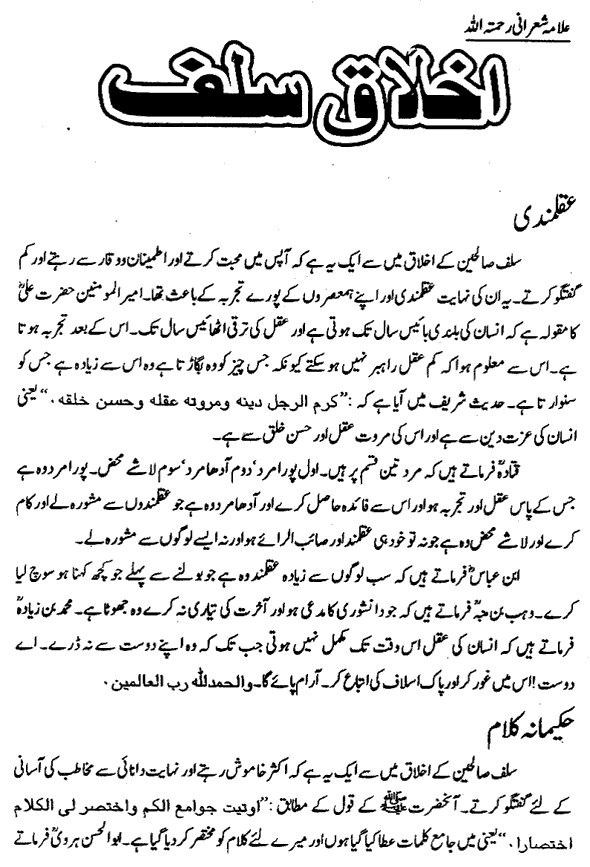 علامہ شعرانی رحمتہ اللہ
اخلاق سلف
عقلمندی
سلف صالحین کے اخلاق میں سے ایک یہ ہے کہ آپس میں محبت کرتے اور اطمینان و وقار سے رہتے اور کم
گفتگو کرتے۔ یہ ان کی نہایت عقلمندی اور اپنے ہمعصروں کے پورے تجربہ کے باعث تھا۔ امیر المومنین حضرت علیؓ
کا مقولہ ہے کہ انسان کی بلندی بائیس سال تک ہوتی ہے اور عقل کی ترقی اٹھائیس سال تک۔ اس کے بعد تجربہ ہوتا
ہے۔ اس سے معلوم ہوا کہ کم عقل راہبر نہیں ہو سکتے کیونکہ جس چیز کو وہ بگاڑتا ہے وہ اس سے زیادہ ہے جس کو
سنوارتا ہے۔ حدیث شریف میں آیا ہے کہ : ”کرم الرجل دینه ومروته عقله وحسن خلقه .“ یعنی
انسان کی عزت دین سے ہے اور اس کی مروت عقل اور حسن خلق سے ہے۔
قتادہؒ فرماتے ہیں کہ مرد تین قسم پر ہیں۔ اول پورا مرد‘ دوم آدھا مرد‘ سوم لاشے محض۔ پورا مرد وہ ہے
جس کے پاس عقل اور تجربہ ہو اور اس سے فائدہ حاصل کرے اور آدھا مرد وہ ہے جو عقلمندوں سے مشورہ لے اور کام
کرے اور لاشے محض وہ ہے جو نہ تو خود ہی عقلمند اور صائب الرائے ہو اور نہ ایسے لوگوں سے مشورہ لے۔
ابن عباسؓ فرماتے ہیں کہ سب لوگوں سے زیادہ عقلمند وہ ہے جو بولنے سے پہلے جو کچھ کہنا ہو سوچ لیا
کرے۔ وہب بن منبہؒ فرماتے ہیں کہ جو دانشوری کا مدعی ہو اور آخرت کی تیاری نہ کرے وہ جھوٹا ہے۔ محمد بن زیادہؒ
فرماتے ہیں کہ انسان کی عقل اس وقت تک مکمل نہیں ہوتی جب تک کہ وہ اپنے دوست سے نہ ڈرے۔ اے
دوست! اس میں غور کر اور پاک اسلاف کی اتباع کر۔ آرام پائے گا۔ والحمدللہ رب العالمین .
حکیمانہ کلام
سلف صالحین کے اخلاق میں سے ایک یہ ہے کہ اکثر خاموش رہتے اور نہایت دانائی سے مخاطب کی آسانی
کے لئے گفتگو کرتے۔ آنحضرت ﷺ کے قول کے مطابق : ”اوتیت جوامع الکم واختصر لی الکلام
اختصارا .“ یعنی میں جامع کلمات عطا کیا گیا ہوں اور میرے لئے کلام کو مختصر کر دیا گیا ہے۔ ابوالحسن ہرویؒ فرماتے